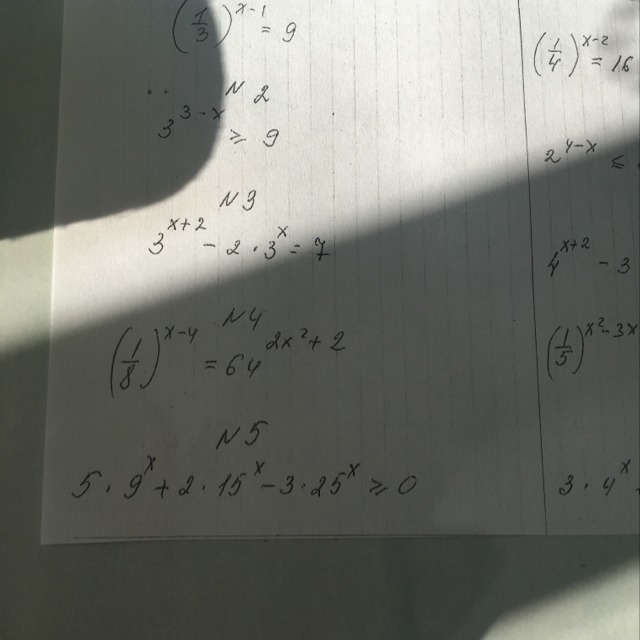 (1/3)^(x-1) = 9
N2
3^(3-x) ≥ 9
N3
3^(x+2) - 2·3^x = 7
N4
(1/8)^(x-4) = 64^(2x²+2)
N5
5·9^x + 2·15^x - 3·25^x ≥ 0
(1/4)^(x-2) = 16
2^(4-x) ≤
4^(x+2) - 3
(1/5)^(x²-3x
3·4^x